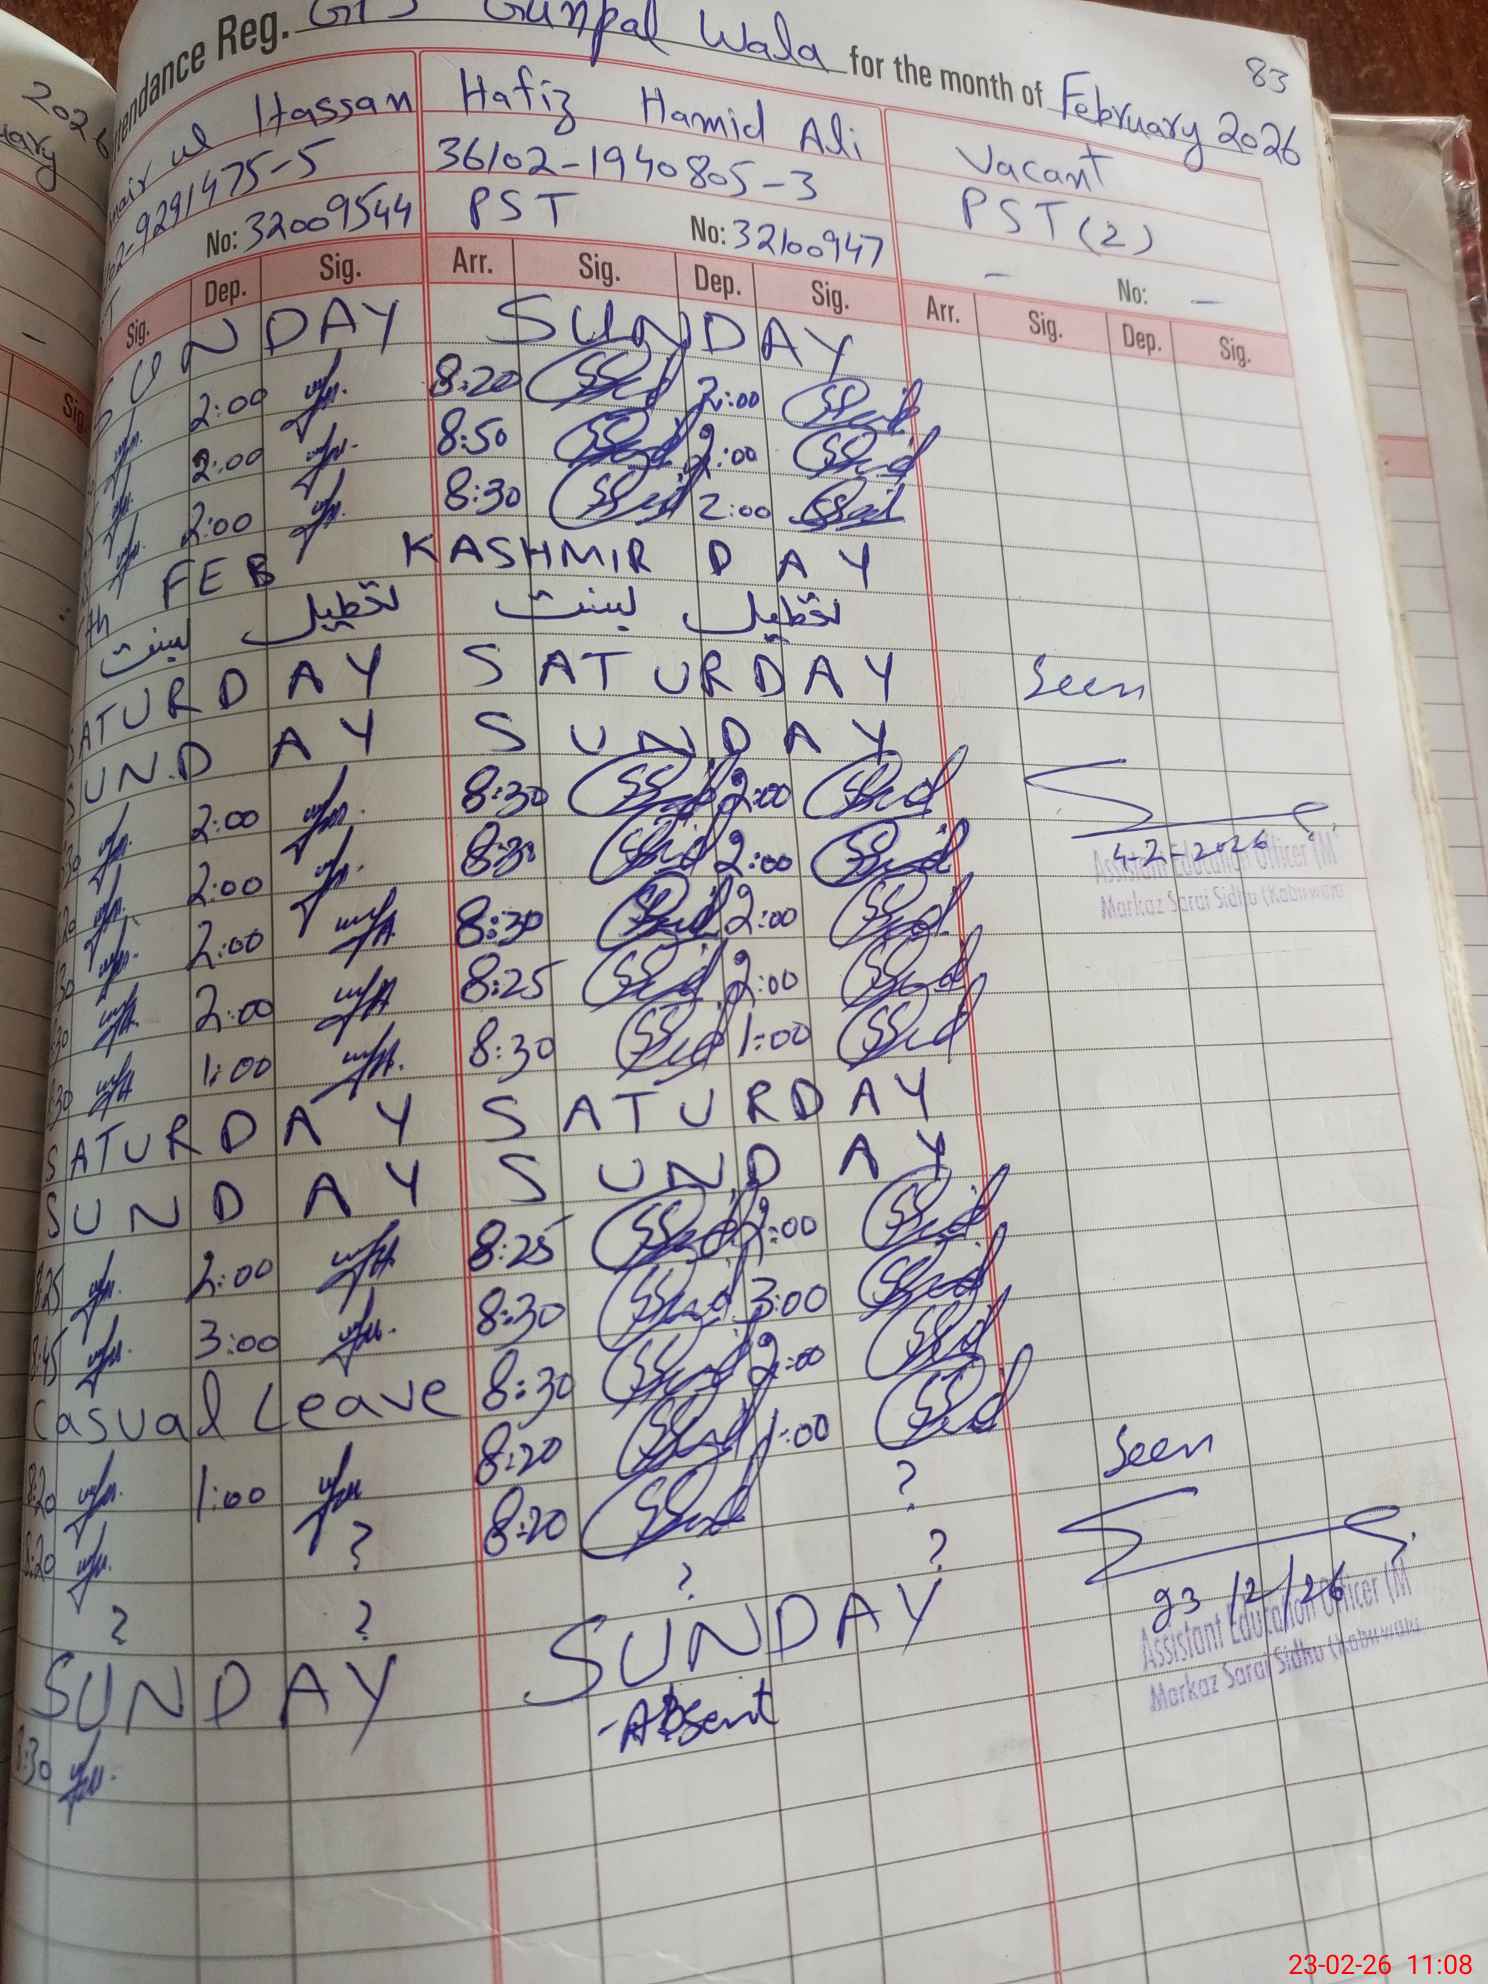 Reg. GPS Gunpal Wala for the month of February 2026
83
Hassan Hafiz Hamid Ali Vacant
9291475-5 36102-1940805-3 PST (2)
No: 32009544 PST No: 32100947 - No: -
Sig. Dep. Sig. Arr. Sig. Dep. Sig. Arr. Sig. Dep. Sig.
SUNDAY SUNDAY
2:00 8:20 2:00
2:00 8:50 2:00
2:00 8:30 2:00
th FEB KASHMIR DAY
بسنت تعطیل بسنت تعطیل
SATURDAY SATURDAY Seen
SUNDAY SUNDAY
2:00 8:30 2:00
4-2-2026
Assistant Education Officer (M
Markaz Sarai Sidhu (Kabirwala
2:00 8:30 2:00
2:00 8:30 2:00
2:00 8:25 2:00
1:00 8:30 1:00
SATURDAY SATURDAY
SUNDAY SUNDAY
8:25 2:00 8:25 2:00
8:45 3:00 8:30 3:00
Casual Leave 8:30 2:00
8:20 1:00 8:20 1:00 Seen
8:20 ? 8:20 ?
? ? ? ?
23/2/26
Assistant Education Officer (M
Markaz Sarai Sidhu (Kabirwala
SUNDAY SUNDAY
8:30 Absent
23-02-26 11:08